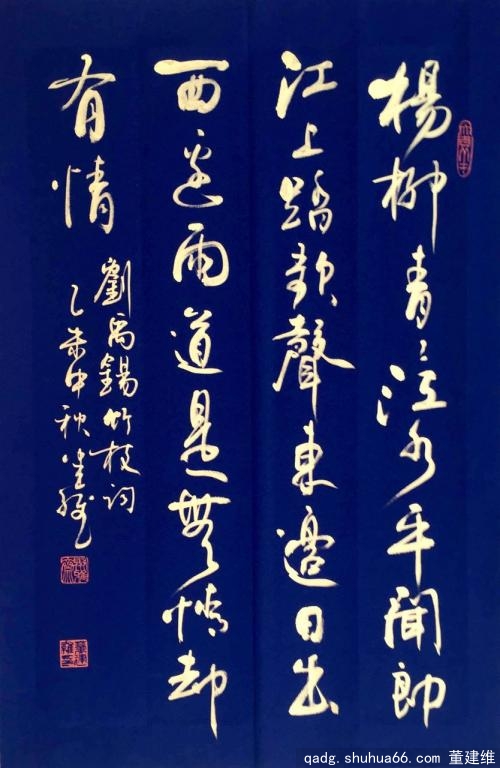 楊柳青〻江水平聞郎
江上踏歌聲東邊日出
西邊雨道是無情却
有情
劉禹錫竹枝詞
乙未中秋建維
qadg.shuhua66.com 董建维